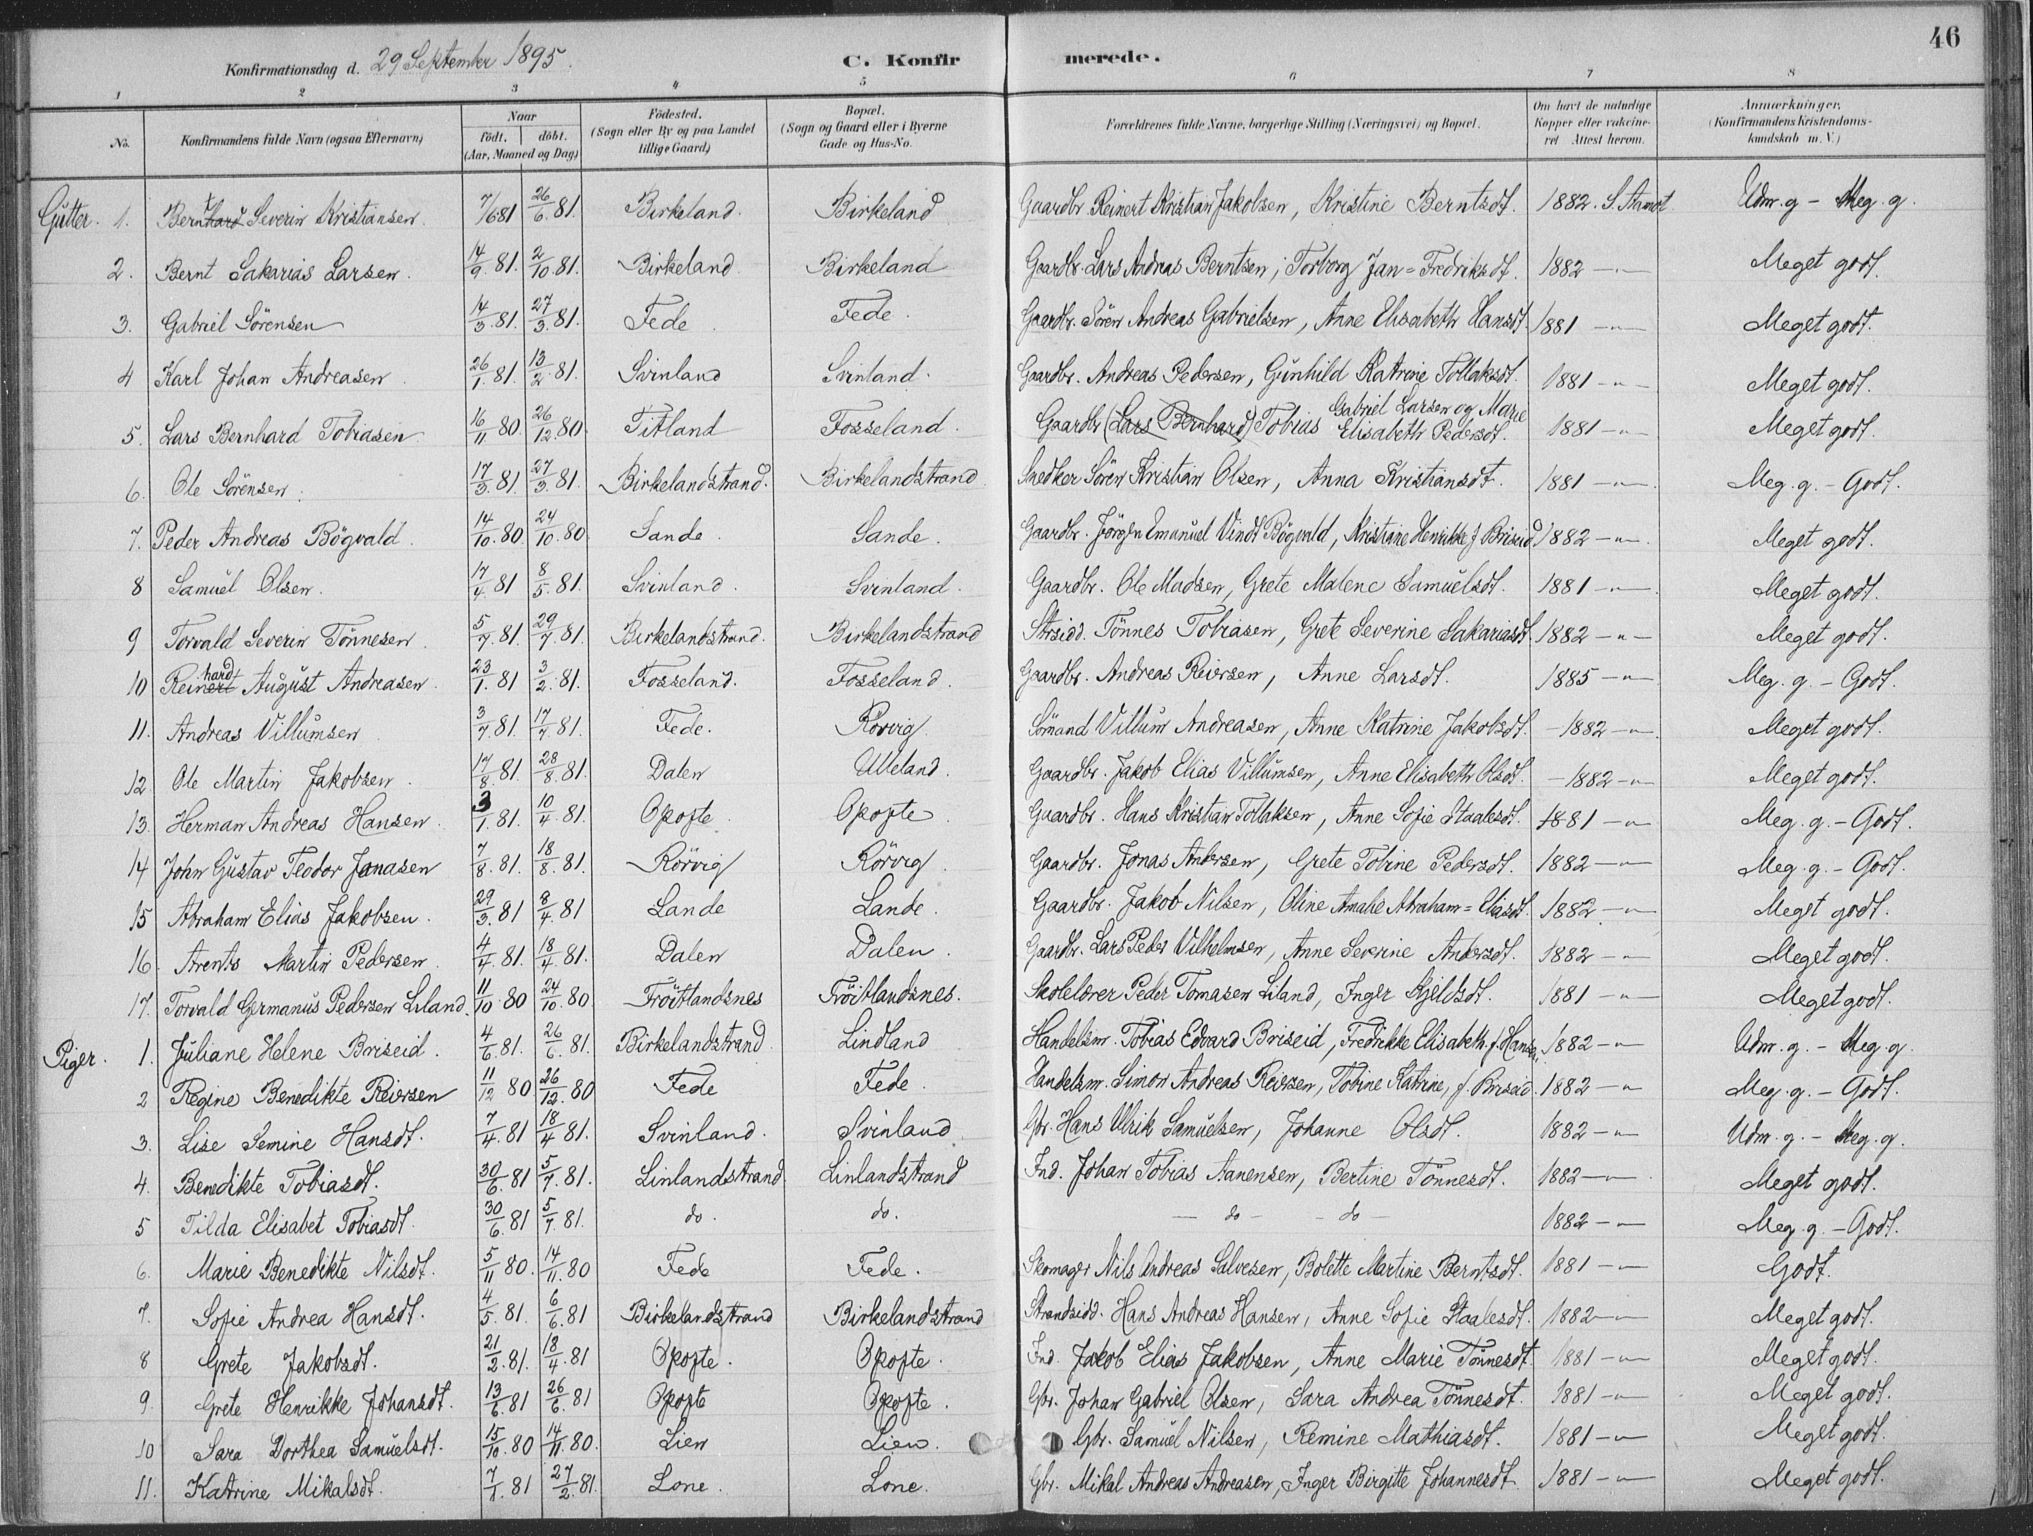 46
Konfirmationsdag d. 29 September 1895. C. Konfirmerede.
1 2 3 4 5 6 7 8
No. Konfirmandens fulde Navn (ogsaa Efternavn) Naar födt. döbt. (Aar, Maaned og Dag) Födested. (Sogn eller By og paa Landet tillige Gaard) Bopæl. (Sogn og Gaard eller i Byerne Gade og Hus-No. Forældrenes fulde Navne, borgerlige Stilling (Næringsvei) og Bopæl. Om havt de naturlige Kopper eller vakcineret Attest herom. Anmærkninger, (Konfirmandens Kristendomskundskab m. V.)
Gutter. 1. Bernt Severin Kristiansen. 7/6 81 26/6 81. Birkeland. Birkeland Gaardbr. Reinert Kristian Jakobsen, Kristine Berntsdt. 1882. S. Aamot Udm. g - Meg. g.
2. Bernt Sakarias Larsen. 14/9 81. 2/10 81. Birkeland Birkeland Gaardbr. Lars Andreas Berntsen, Torborg Jan=Fredriksdt. 1882 -"- Meget godt.
3. Gabriel Sörensen 14/3 81. 27/3 81. Fede. Fede. Gaardbr. Sören Andreas Gabrielsen, Anne Elisabeth Hansdt. 1881 -"- Meget godt.
4 Karl Johan Andreasen. 26/1 81. 13/2 81. Svinland Svinland. Gaardbr. Andreas Pedersen, Gunhild Katrine Tollaksdt. 1881 -"- Meget godt.
5. Lars Bernhard Tobiasen 16/11 80. 26/12 80. Titland Fosseland. Gaardbr. (Lars Bernhard) Tobias Gabriel Larsen og Marie Elisabeth Pedersdt. 1881 -"- Meget godt.
6. Ole Sörensen. 17/3 81. 27/3 81. Birkelandstrand. Birkelandstrand Snedker Sören Kristian Olsen, Anna Kristiansdt. 1881 -"- Meg. g. - Godt.
7. Peder Andreas Bögvald. 14/10 80. 24/10 80. Sande. Sande. Gaardbr. Jörgen Emanuel Vindt Bögvald, Kristiane Henrikke f. Briseid 1882 -"- Meget godt.
8 Samuel Olsen. 17/4 81 8/5 81. Svinland. Svinland. Gaardbr. Ole Madsen, Grete Malene Samuelsdt. 1881 -"- Meget godt.
9 Torvald Severin Tönnesen. 5/7 81. 29/7 81. Birkelandstrand. Birkelandstrand Strsidd. Tönnes Tobiasen, Grete Severine Sakariasdt. 1882 -"- Meget godt.
10 Reinhard August Andreasen. 23/1 81 3/2 81. Fosseland. Fosseland. Gaardbr. Andreas Reiersen, Anne Larsdt. 1885 -"- Meg. g. - Godt.
11. Andreas Villumsen 3/7 81. 17/7 81. Fede. Rörvig Sömand Villum Andreasen, Anne Katrine Jakobsdt. - 1882 -"- Meget godt.
12 Ole Martin Jakobsen. 17/8 81. 28/8 81. Dalen Ulleland. Gaardbr. Jakob Elias Villumsen, Anne Elisabeth Olsdt. - 1882 -"- Meget godt.
13. Herman Andreas Hansen. 3/1 81. 10/4 81. Opofte. Opofte. Gaardbr. Hans Kristian Tollaksen, Anne Sofie Staalesdt. 1881 -"- Meg. g. - Godt.
14 John Gustav Teodor Jonasen 7/8 81. 18/8 81. Rörvig Rörvig Gaardbr. Jonas Andersen, Grete Tobine Pedersdt. 1882 -"- Meg. g. - Godt.
15 Abraham Elias Jakobsen. 29/3 81 8/4 81 Lande Lande. Gaardbr. Jakob Nilsen, Oline Amalie Abraham=Eliasdt. 1882 -"- Meget godt.
16. Arents Martin Pedersen. 4/4 81. 18/4 81. Dalen Dalen. Gaardbr. Lars Peder Vilhelmsen, Anne Severine Andersdt. 1882 -"- Meget godt.
17. Torvald Germanus Pedersen Liland. 11/10 80 24/10 80. Tröitlandsnes Tröitlandsnes. Skolelærer Peder Tomasen Liland, Inger Kjeldsdt. 1881 -"- Meget godt.
Piger. 1. Juliane Helene Briseid. 4/6 81. 26/6 81. Birkelandstrand Lindland Handelsm. Tobias Edvard Briseid, Fredrikke Elisabeth f. Hansen. 1882 -"- Udm. g. - Meg. g.
2 Regine Benedikte Reiersen 11/12 80 26/12 80 Fede Fede. Handelsm. Simon Andreas Reiersen, Tobine Katrine, f. Briseid. 1882 -"- Meg. g. - Godt.
3. Lise Semine Hansdt. 7/4 81 18/4 81. Svinland. Svinland Gbr. Hans Ulrik Samuelsen, Johanne Olsdt. 1882 -"- Udm. g. - Meg. g.
4. Benedikte Tobiasdt. 30/6 81 5/7 81. Linlandstrand Linlandstrand Ind. Johan Tobias Aanensen, Bertine Tönnesdt. 1882 -"- Meget godt.
5 Tilda Elisabet Tobiasdt. 30/6 81 5/7 81. do. do. - do - - do - 1882 -"- Meg. g. - Godt.
6. Marie Benedikte Nilsdt. 5/11 80. 14/11 80 Fede Fede. Skomager Nils Andreas Salvesen, Bolette Martine Berntsdt. 1881 -"- Godt.
7. Sofie Andrea Hansdt. 4/5 81. 6/6 81 Birkelandstrand Birkelandstrand Strandsidd. Hans Andreas Hansen, Anne Sofie Staalesdt. 1882 -"- Meget godt.
8 Grete Jakobsdt. 21/2 81. 18/4 81 Opofte. Opofte. Ind. Jakob Elias Jakobsen, Anne Marie Tönnesdt. 1881 -"- Meget godt.
9. Grete Henrikke Johansdt. 13/6 81 26/6 81 Opofte Opofte. Gbr. Johan Gabriel Olsen, Sara Andrea Tönnesdt. 1881 -"- Meget godt.
10 Sara Dorthea Samuelsdt. 15/10 80 14/11 80. Lien Lien. Gbr. Samuel Nilsen, Remine Mathiasdt. 1881 -"- Meget godt.
11. Katrine Mikalsdt. 7/1 81 27/2 81. Lone. Lone. Gbr. Mikal Andreas Andreasen, Inger Birgitte Johannesdt. 1881 -"- Meget godt.